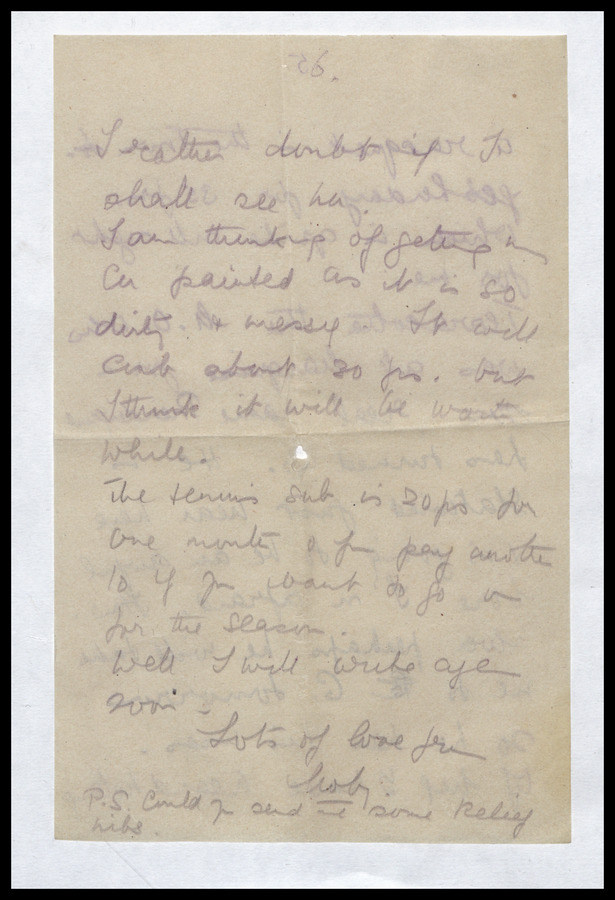 6.
I rather doubt if I
shall see her.
I am thinking of geting my
Car painted as it is so
dirty & messy It will
Cost about 30 ps. but
I think it will be worth
while.
The tennis sub is 20ps for
one month & you pay another
10 if you want to go on
for the season
Well I will write again
soon -
Lots of love from
P.S. Could you send me some Relief
nibs.